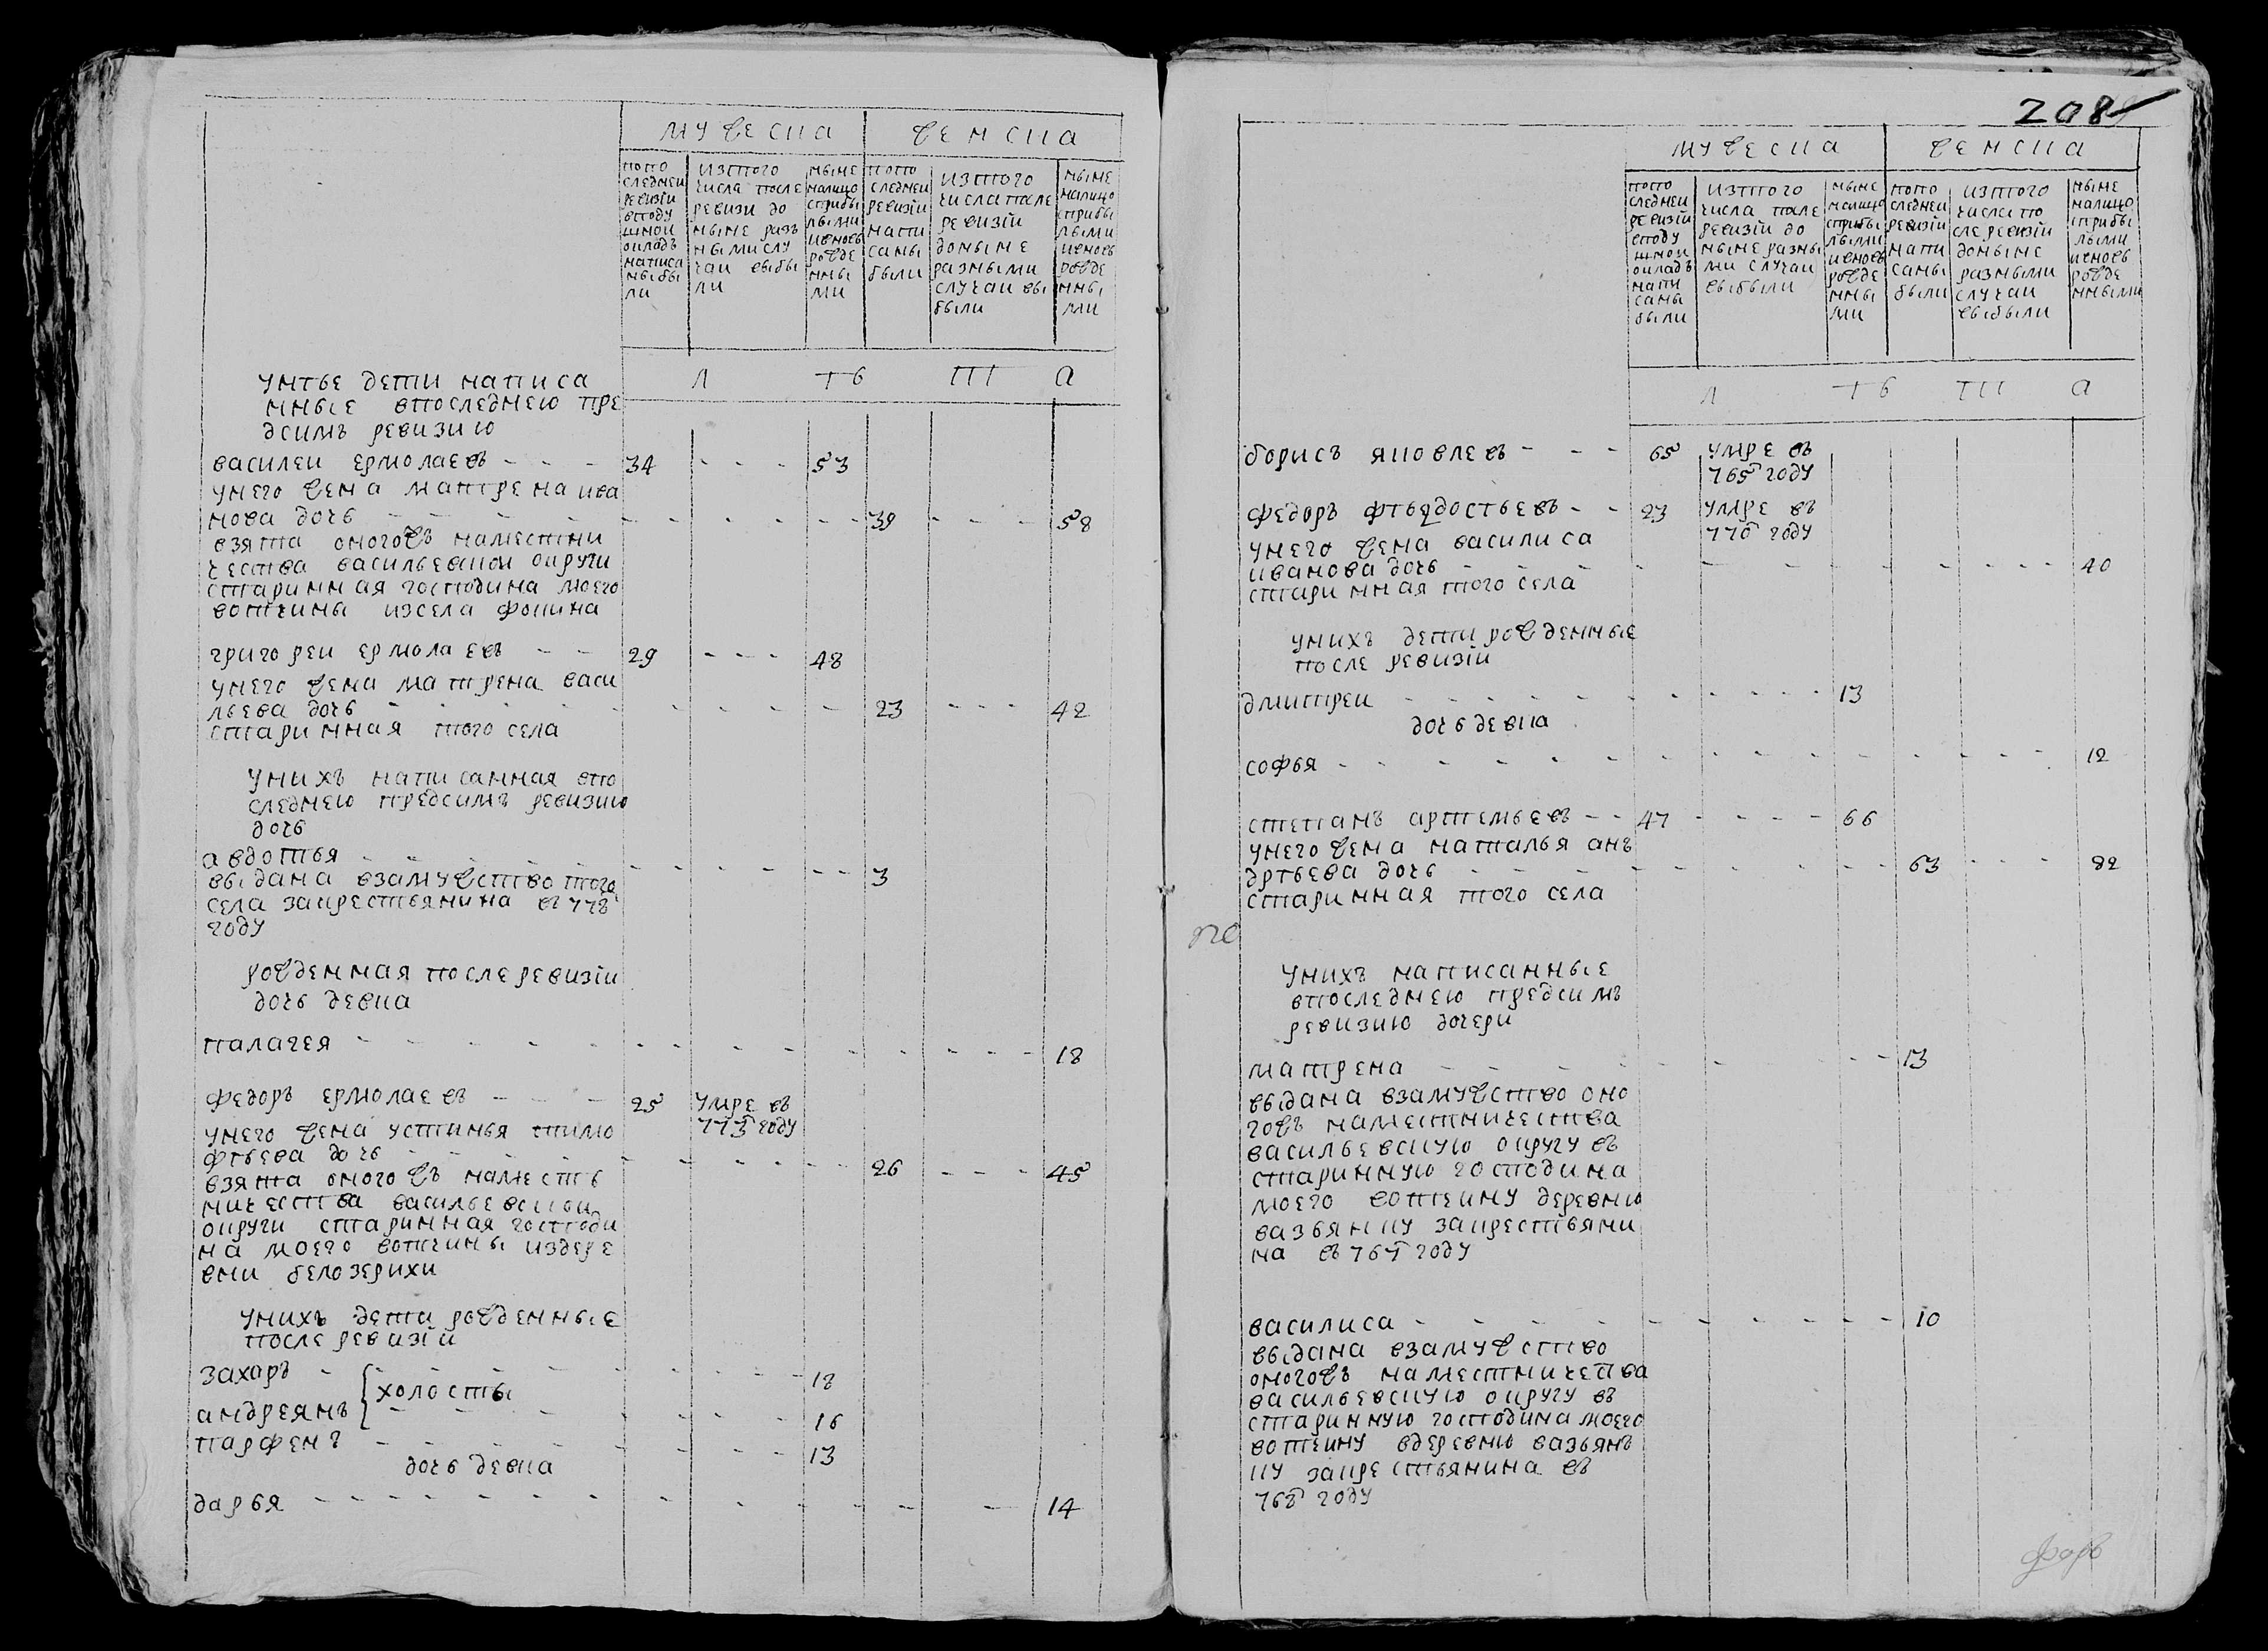 мужеска женска
попо следней ревизiи вподу шной окладъ написа ны бы ли
изтого числа после ревизи до ныне раз ными слу чаи выбы ли
ныне налицо сприбы лыми ивновь рожде нны ми
попо следней ревизiи напи саны были
изтого числа после ревизiи доныне разными случаи вы были
ныне налицо сприбы лыми ивновь рожде нны ми
л ѣ т а
унѣе дети написа
нные впоследнею пре
дсимъ ревизию
василеи ермолаевъ - - - 34 - - - 53
унего жена матрена ива
нова дочь - - - 39 - - - 58
взята оногожъ наместни
чества васильевкои округи
старинная господина моего
вотчины изсела фокина
григореи ермолаевъ - - 29 - - - 48
унего жена матрена васи
льева дочь - - - 23 - - - 42
старинная того села
унихъ написанная впо
следнею предсимъ ревизию
дочь
авдотья - - - 3
выдана взамужство того
села закрестьянина въ 778
году
рожденная после ревизiи
дочь девка
палагея - - - 18
федоръ ермолаевъ - - - 25 умре въ
773 году
унего жена устинья тимо
фѣева дочь - - - 26 - - - 45
взята оногожъ наместъ
ничества васильевскои
округи старинная господи
на моего вотчины издере
вни белозерихи
унихъ дети рожденные
после ревизiи
захаръ - - - 18
холосты
андреянъ - - - 16
парфенъ - - - 13
дочь девка
дарья - - - 14
208
мужеска женска
попо следней ревизiи вподу шнои окладъ напи саны были
изтого числа после ревизiи до ныне разны ми случаи выбыли
ныне налицо сприбы лыми ивновь рожде нны ми
попо следней ревизiи напи саны были
изтого числа по сле ревизiи доныне разными случаи выбыли
ныне налицо сприбы лыми ивновь рожде нными
л ѣ т а
борисъ яковлевъ - - - 65 умре въ
765 году
федоръ фѣадостьевъ - - 23 умре въ
770 году
унего жена василиса
иванова дочь - - - 40
старинная того села
унихъ дети рожденные
после ревизiи
дмитреи - - - 13
дочь девка
софья - - - 12
степанъ артемьевъ - - 47 - - - 66
унего жена наталья анъ
дрѣева дочь - - - 63 - - - 82
старинная того села
унихъ написанные
впоследнею предсимъ
ревизию дочери
матрена - - - 13
выдана взамужство оно
гожъ наместничества
васильевскую округу въ
старинную господина
моего вотчину деревню
вазьянку закрестьяни
на въ 767 году
василиса - - - 10
выдана взамужство
оногожъ наместничества
васильевскую округу въ
старинную господина моего
вотчину вдеревню вазьянъ
ку закрестьянина въ
768 году